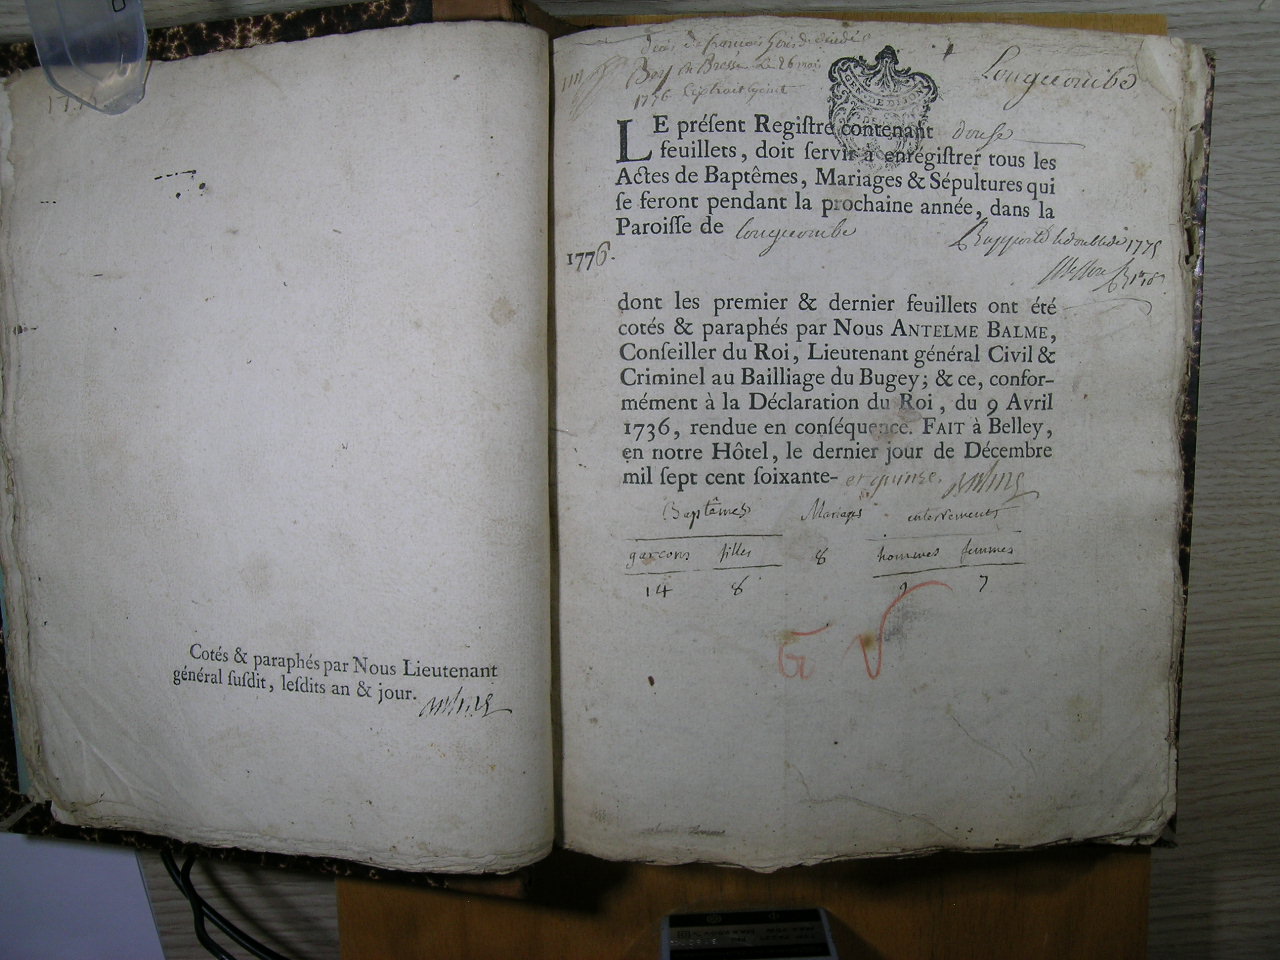 Cotés & paraphés par Nous Lieutenant
général ſuſdit, leſdits an & jour.
Décès de françois
en Bresse le 26 mai
1776
Longecombe
LE préſent Regiſtre contenant douſe
feuillets, doit ſervir à enrégiſtrer tous les
Actes de Baptêmes, Mariages & Sépultures qui
ſe feront pendant la prochaine année, dans la
Paroiſſe de longecombe
Rapporté le double de 1775
1776.
dont les premier & dernier feuillets ont été
cotés & paraphés par Nous ANTELME BALME,
Conſeiller du Roi, Lieutenant général Civil &
Criminel au Bailliage du Bugey; & ce, confor-
mément à la Déclaration du Roi, du 9 Avril
1736, rendue en conſéquence. FAIT à Belley,
en notre Hôtel, le dernier jour de Décembre
mil ſept cent ſoixante- et quinze.
Baptêmes Mariages enterrements
garcons filles 8 hommes femmes
14 8 9 7